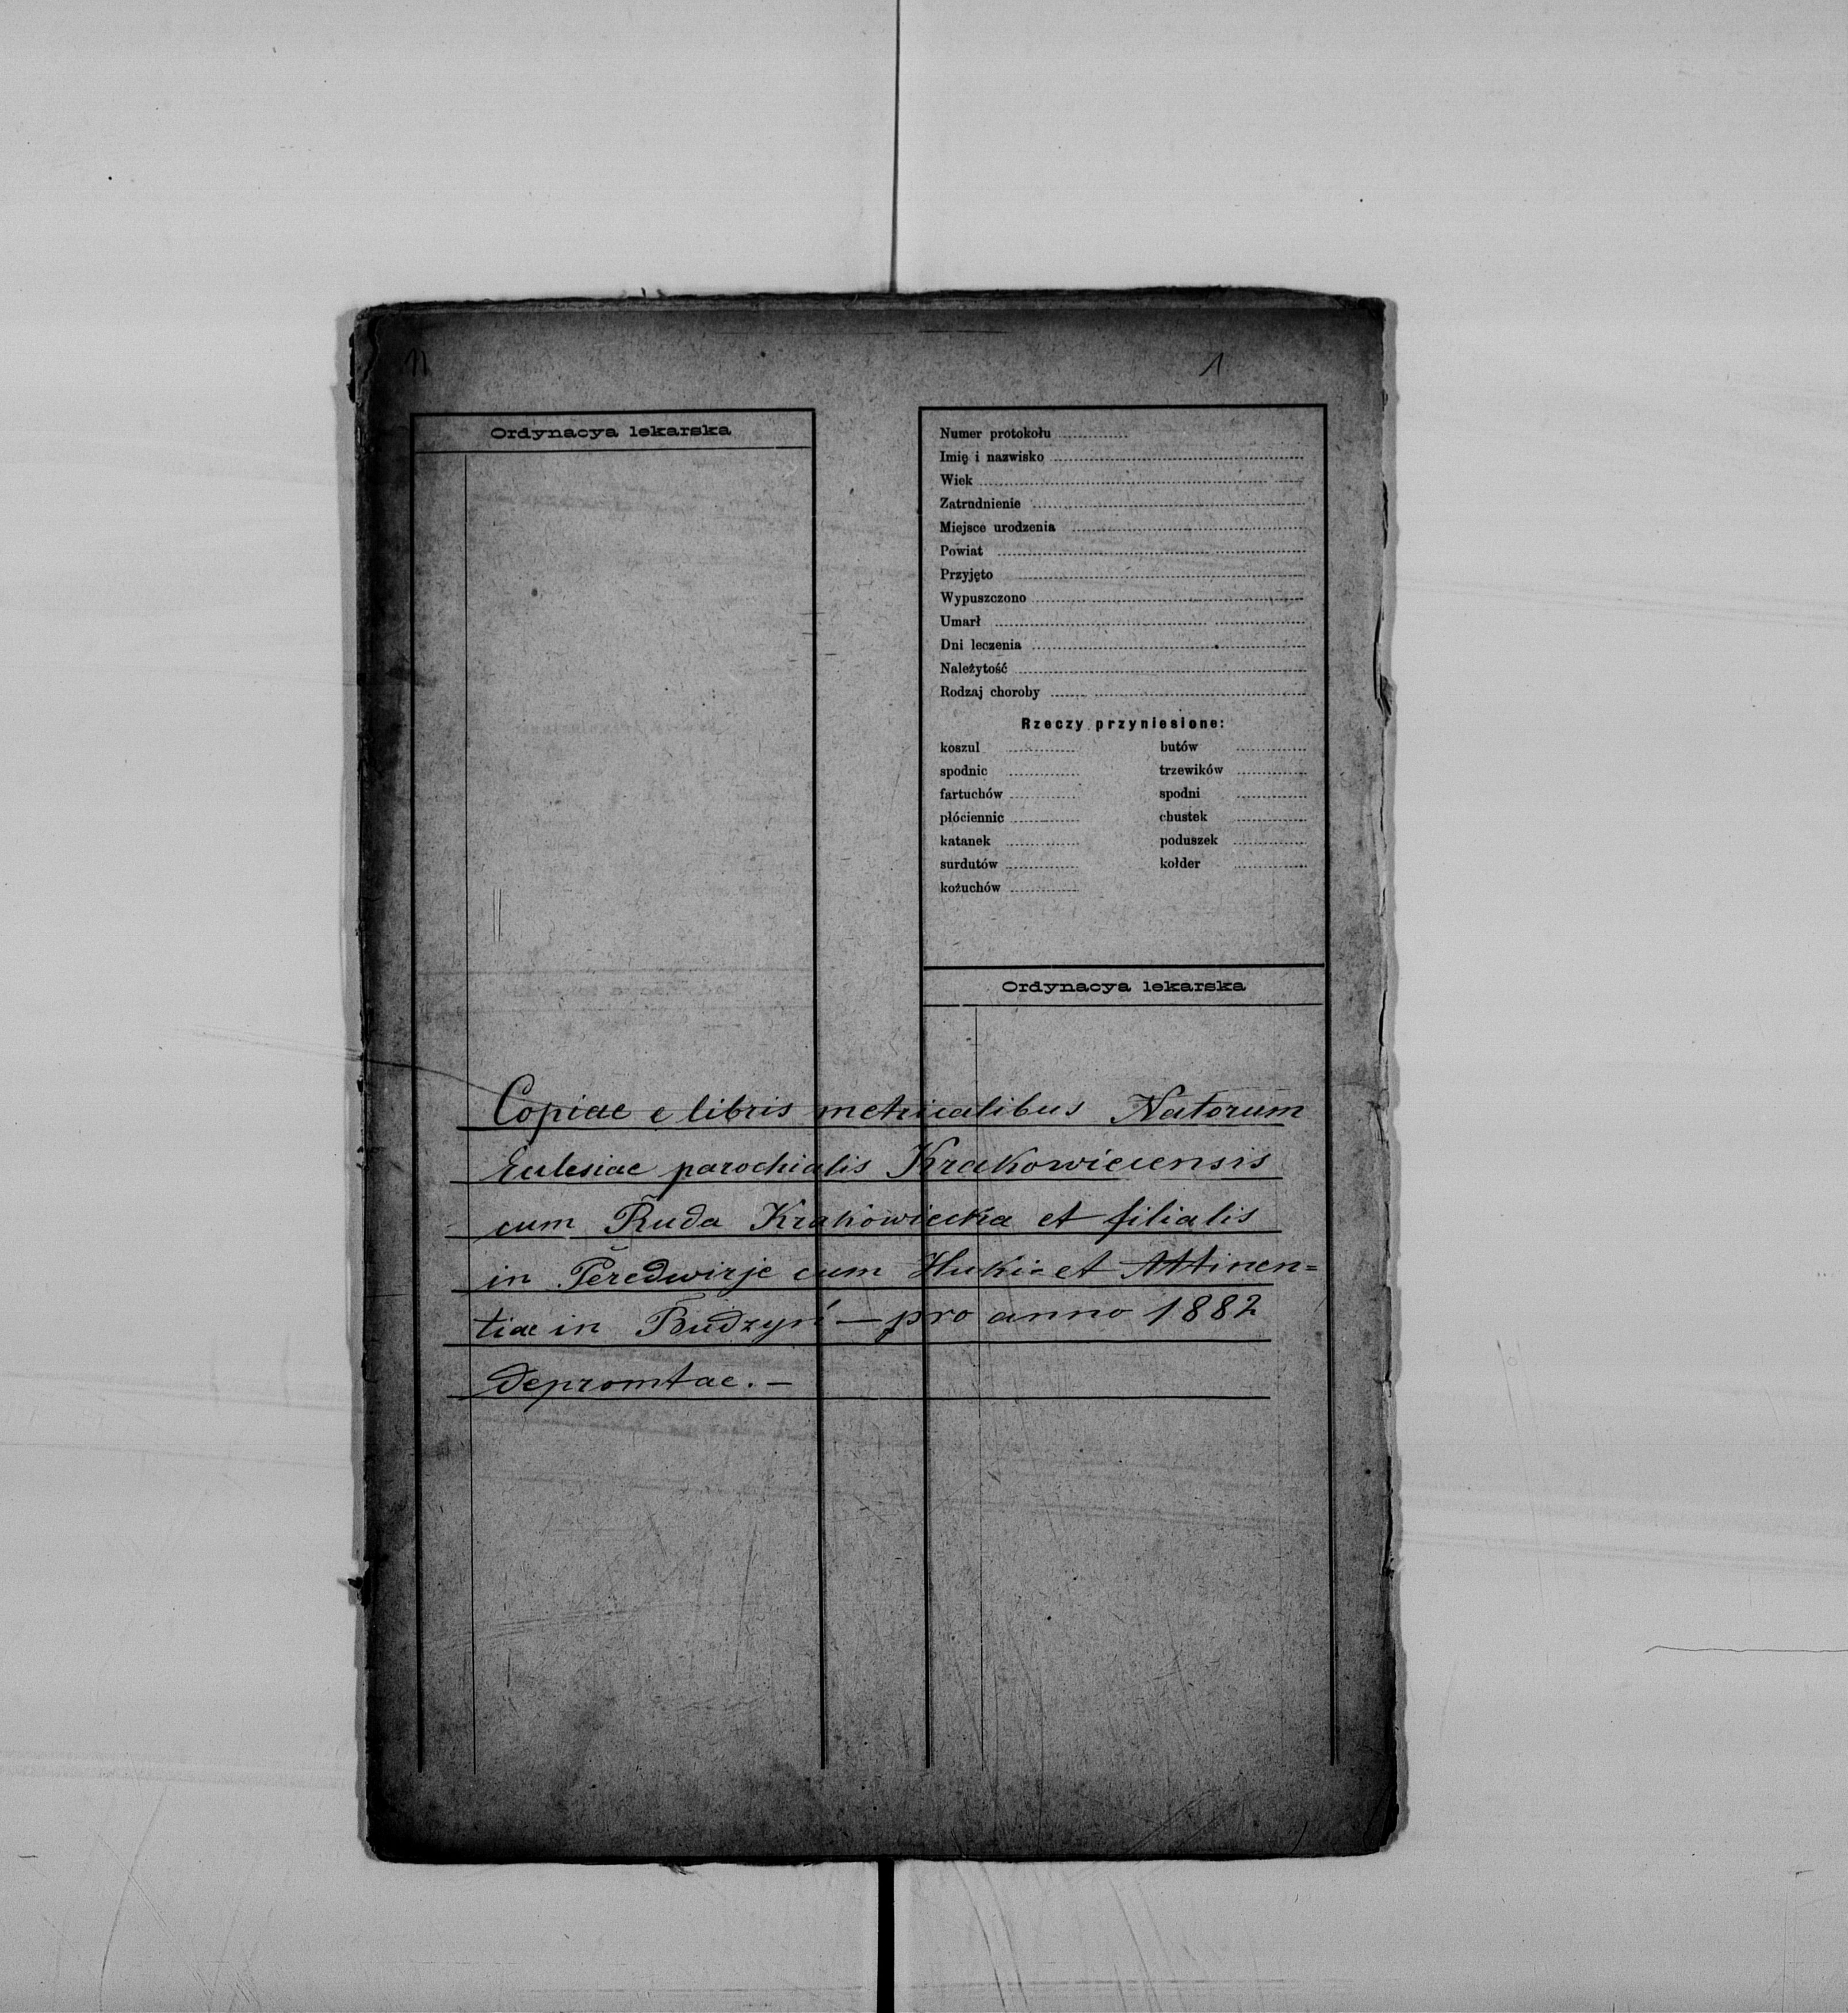 11
1
Ordynacya lekarska
Numer protokołu
Imię i nazwisko
Wiek
Zatrudnienie
Miejsce urodzenia
Powiat
Przyjęto
Wypuszczono
Umarł
Dni leczenia
Należytość
Rodzaj choroby
Rzeczy przyniesione:
koszul butów
spodnic trzewików
fartuchów spodni
płóciennic chustek
katanek poduszek
surdutów kołder
kożuchów
Ordynacya lekarska
Copiae e libris metricalibus Natorum
Eclesiae parochialis Krakowiecensis
cum Ruda Krakowiecka et filialis
in Peredwirje cum Huki et Attinen=
tiae in Budzyń — pro anno 1882
depromtae. —